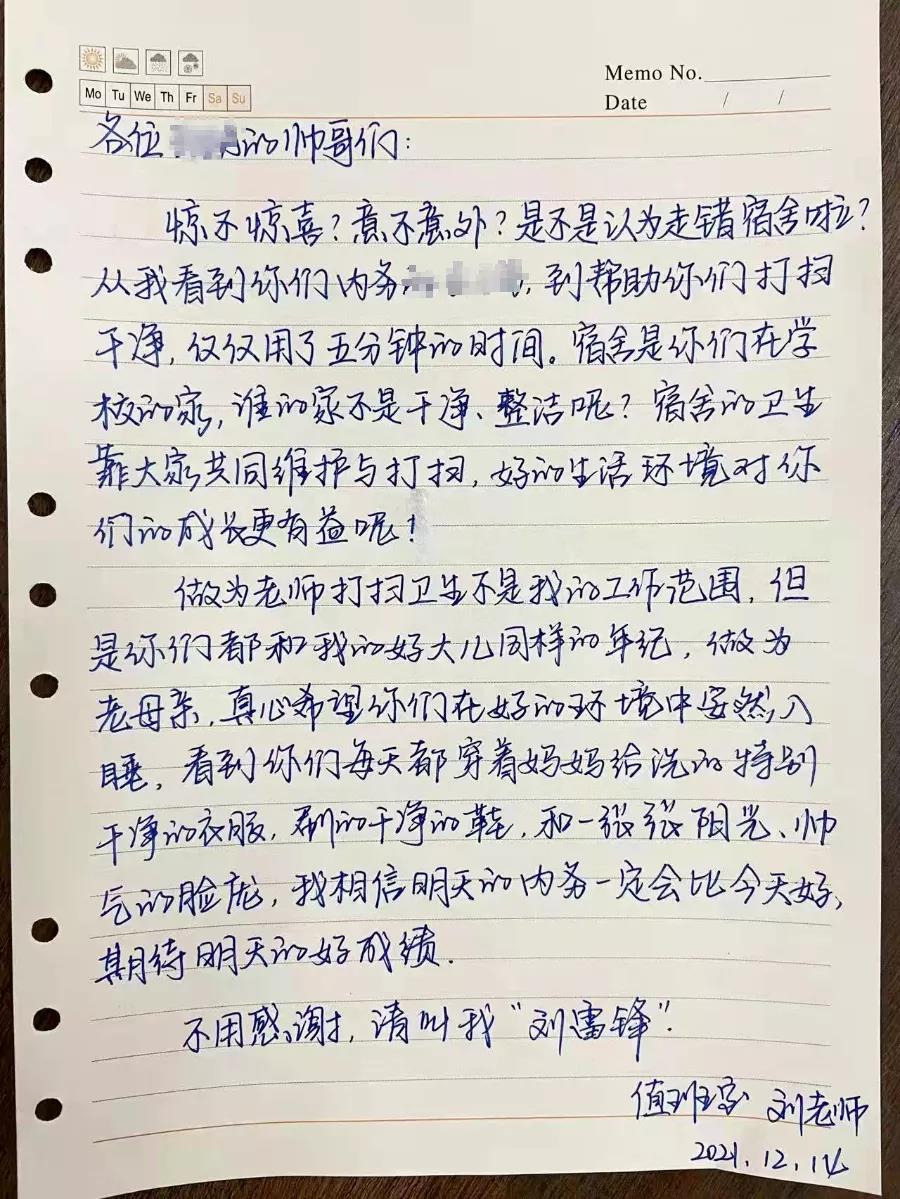 Memo No.
Mo Tu We Th Fr Sa Su
Date / /
各位的帅哥们：
惊不惊喜？意不意外？是不是认为走错宿舍啦？
从我看到你们内务，到帮助你们打扫
干净，仅仅用了五分钟的时间。宿舍是你们在学
校的家，谁的家不是干净、整洁呢？宿舍的卫生
靠大家共同维护与打扫，好的生活环境对你
们的成长更有益呢！
做为老师打扫卫生不是我的工作范围，但
是你们都和我的好大儿同样的年纪，做为
老母亲，真心希望你们在好的环境中安然入
睡，看到你们每天都穿着妈妈给洗的特别
干净的衣服，刷的干净的鞋，和一张张阳光、帅
气的脸庞，我相信明天的内务一定会比今天好，
期待明天的好成绩.
不用感谢，请叫我“刘雷锋”.
值班室 刘老师
2021.12.14